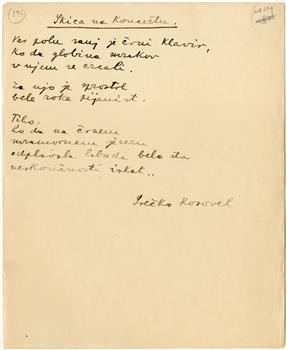 Skica na koncertu.
Ves poln sanj je črni klavir,
ko da globina mrakov
v njem se zrcali.
Za njo je prostrl
bele roke pijanist.
Tiho,
ko da na črnem
mramornem jezeru
odplavala laboda bela sta
neskončnosti iskat..
Srečko Kosovel